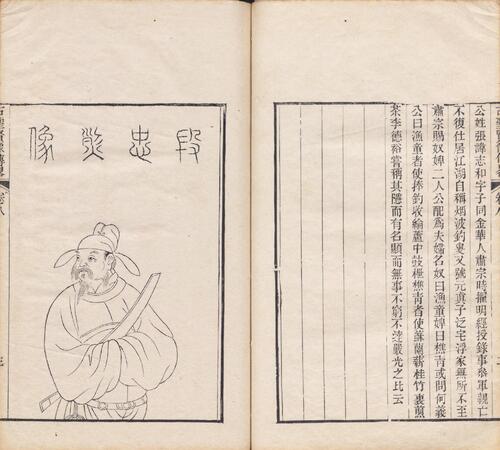 公姓張諱志和字子同金華人肅宗時擢明經授錄事參軍親亡
不復仕居江湖自稱烟波釣叟又號元真子泛宅浮家無所不至
肅宗賜奴婢二人公配爲夫婦名奴曰漁童婢曰樵青或問何義
公曰漁童者使捧釣收綸蘆中鼓枻樵青者使蘇蘭薪桂竹裏煎
茶李德裕嘗稱其隱而有名顯而無事不窮不達嚴光之比云
段忠烈像